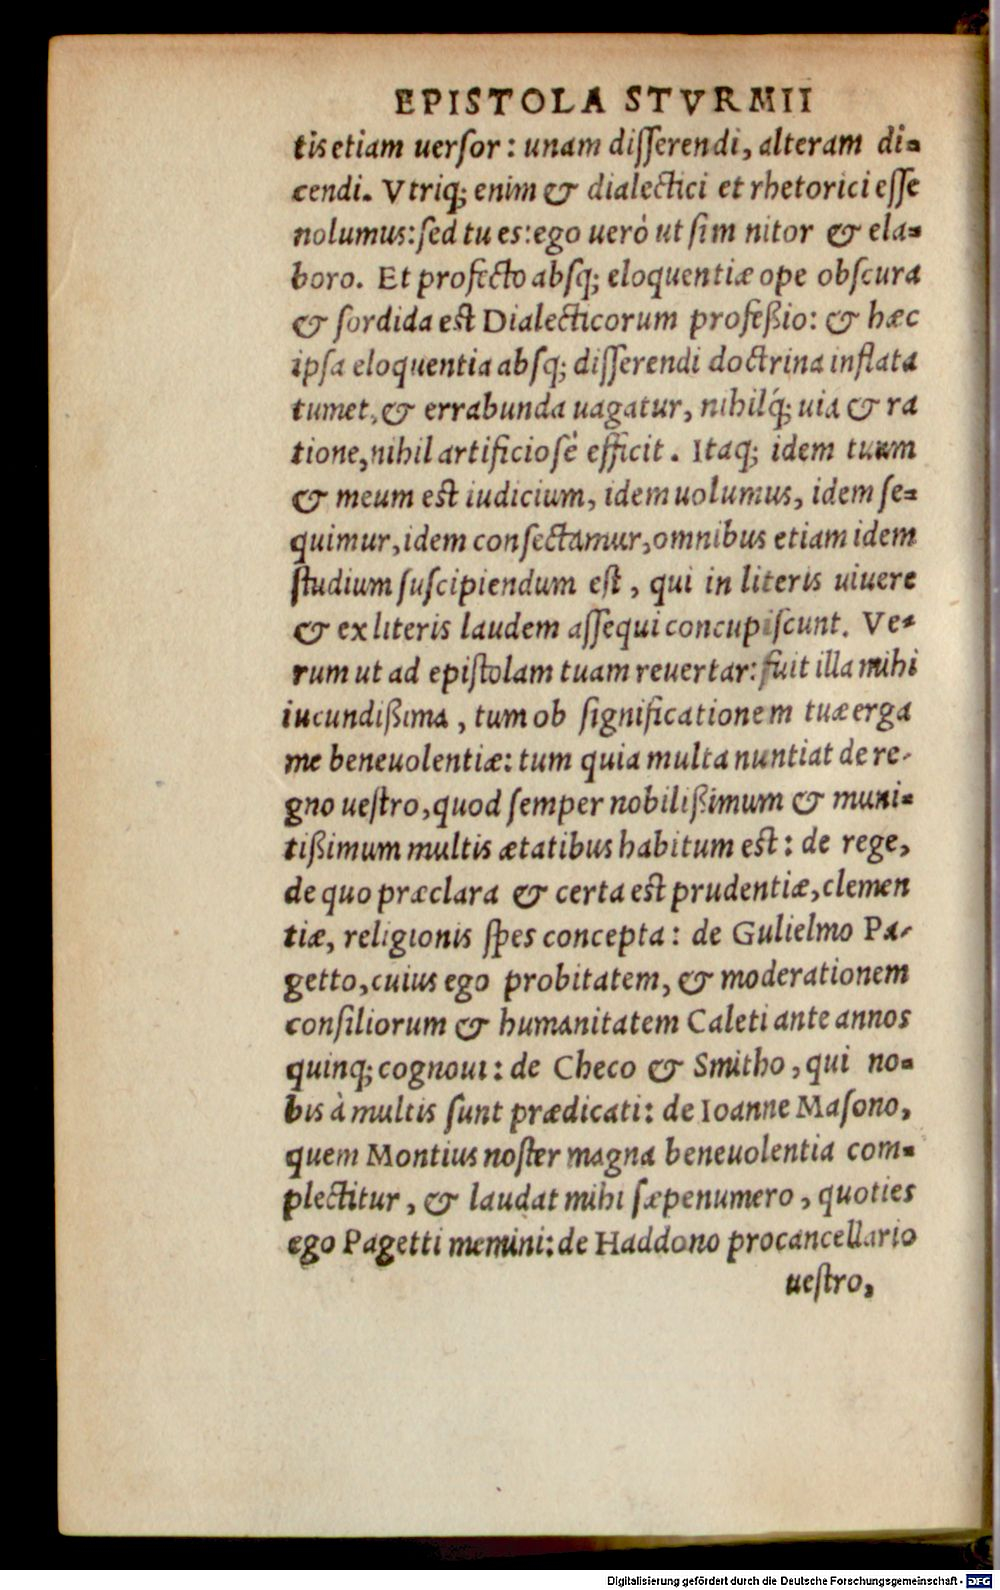 EPISTOLA STVRMII
tis etiam uersor: unam disserendi, alteram di=
cendi. Vtriq; enim & dialectici et rhetorici esse
nolumus: sed tu es: ego uerò ut sim nitor & ela=
boro. Et profecto absq; eloquentiæ ope obscura
& sordida est Dialecticorum profeßio: & hæc
ipsa eloquentia absq; disserendi doctrina inflata
tumet, & errabunda uagatur, nihilq́; uia & ra
tione, nihil artificiosè efficit. Itaq; idem tuum
& meum est iudicium, idem uolumus, idem se=
quimur, idem consectamur, omnibus etiam idem
studium suscipiendum est, qui in literis uiuere
& ex literis laudem assequi concupiscunt. Ve=
rum ut ad epistolam tuam reuertar: fuit illa mihi
iucundißima, tum ob significationem tuæ erga
me beneuolentiæ: tum quia multa nuntiat de re-
gno uestro, quod semper nobilißimum & muni=
tißimum multis ætatibus habitum est: de rege,
de quo præclara & certa est prudentiæ, clemen
tiæ, religionis spes concepta: de Gulielmo Pa-
getto, cuius ego probitatem, & moderationem
consiliorum & humanitatem Caleti ante annos
quinq; cognoui: de Checo & Smitho, qui no=
bis à multis sunt prædicati: de Ioanne Masono,
quem Montius noster magna beneuolentia com=
plectitur, & laudat mihi sæpenumero, quoties
ego Pagetti memini: de Haddono procancellario
uestro,
Digitalisierung gefördert durch die Deutsche Forschungsgemeinschaft - DFG